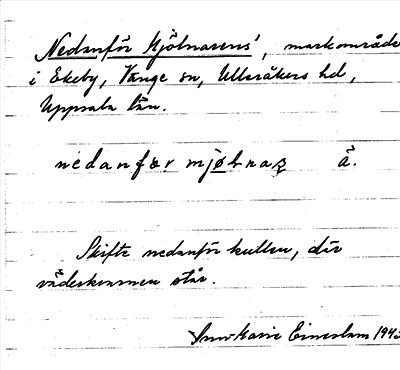 Nedanför Mjölnarens', markområde
i Ekeby, Vänge sn, Ulleråkers hd,
Uppsala län.
nedanfør mjøḷnaṣ å.
Skifte nedanför kullen, där
väderkvarnen står.
1943